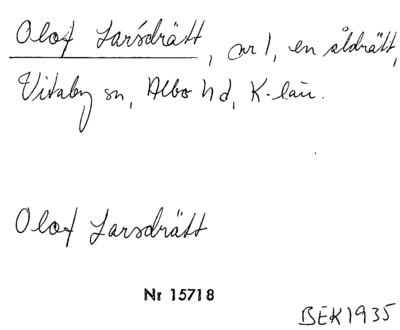 Olof Larsdrätt, or 1, en åldrätt,
Vitaby sn, Albo hd, K-län.
Olof Larsdrätt
Nr 15718
BEK1935